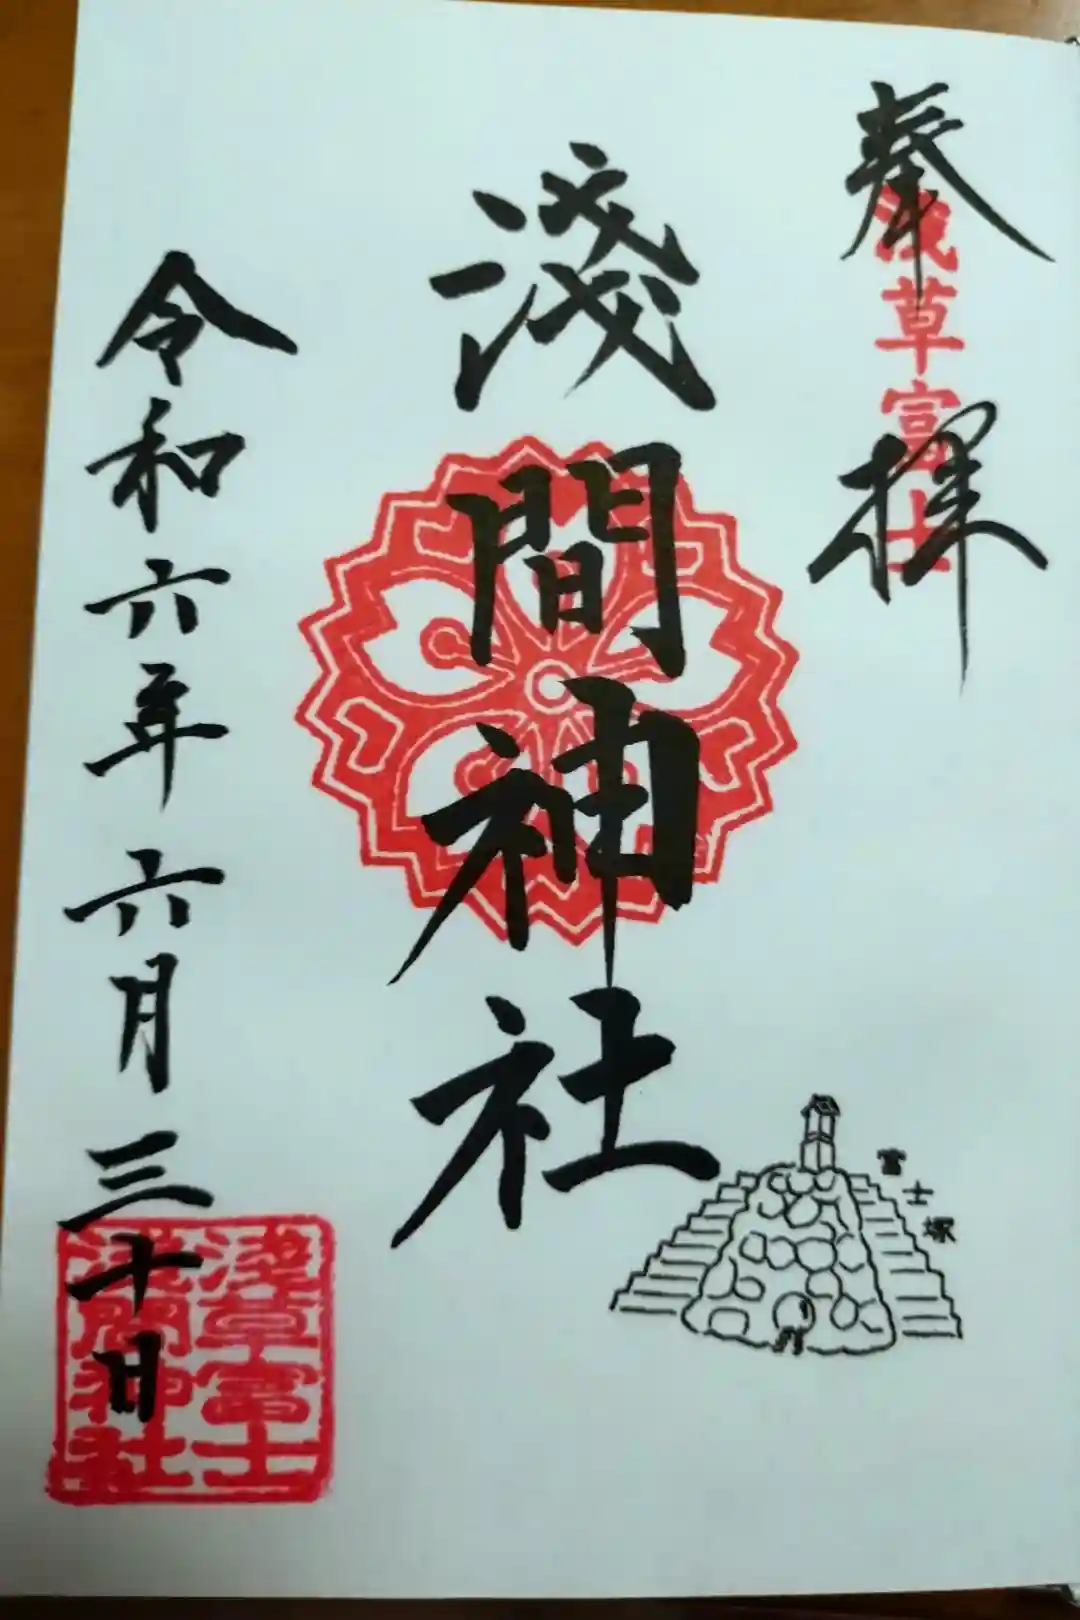 奉拝
浅草富士
淺間神社
富士塚
令和六年六月三十日
浅草富士
浅間神社